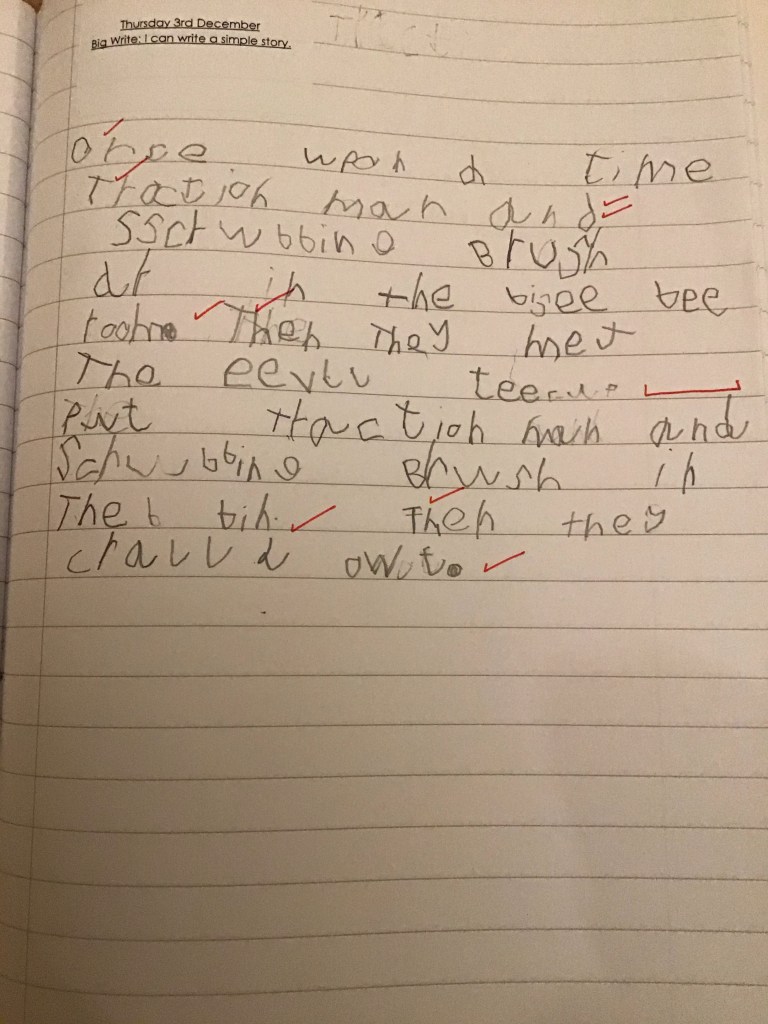 Thursday 3rd December
Big Write: I can write a simple story.
Once upon a time
Traction man and
SScrubbing Brush
ar in the bisee bee
Then They met
Tha eevlu
Put traction man and
Scrubbing Brush in
The b bin. Then they
cralld owt.